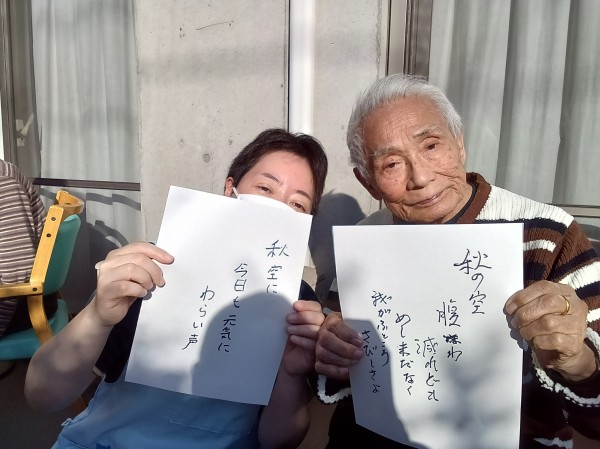 秋空に
今日も 元気に
わらい声
秋の空
腹わ
減れども
めし未だなく
我がふところ
さびしさよ